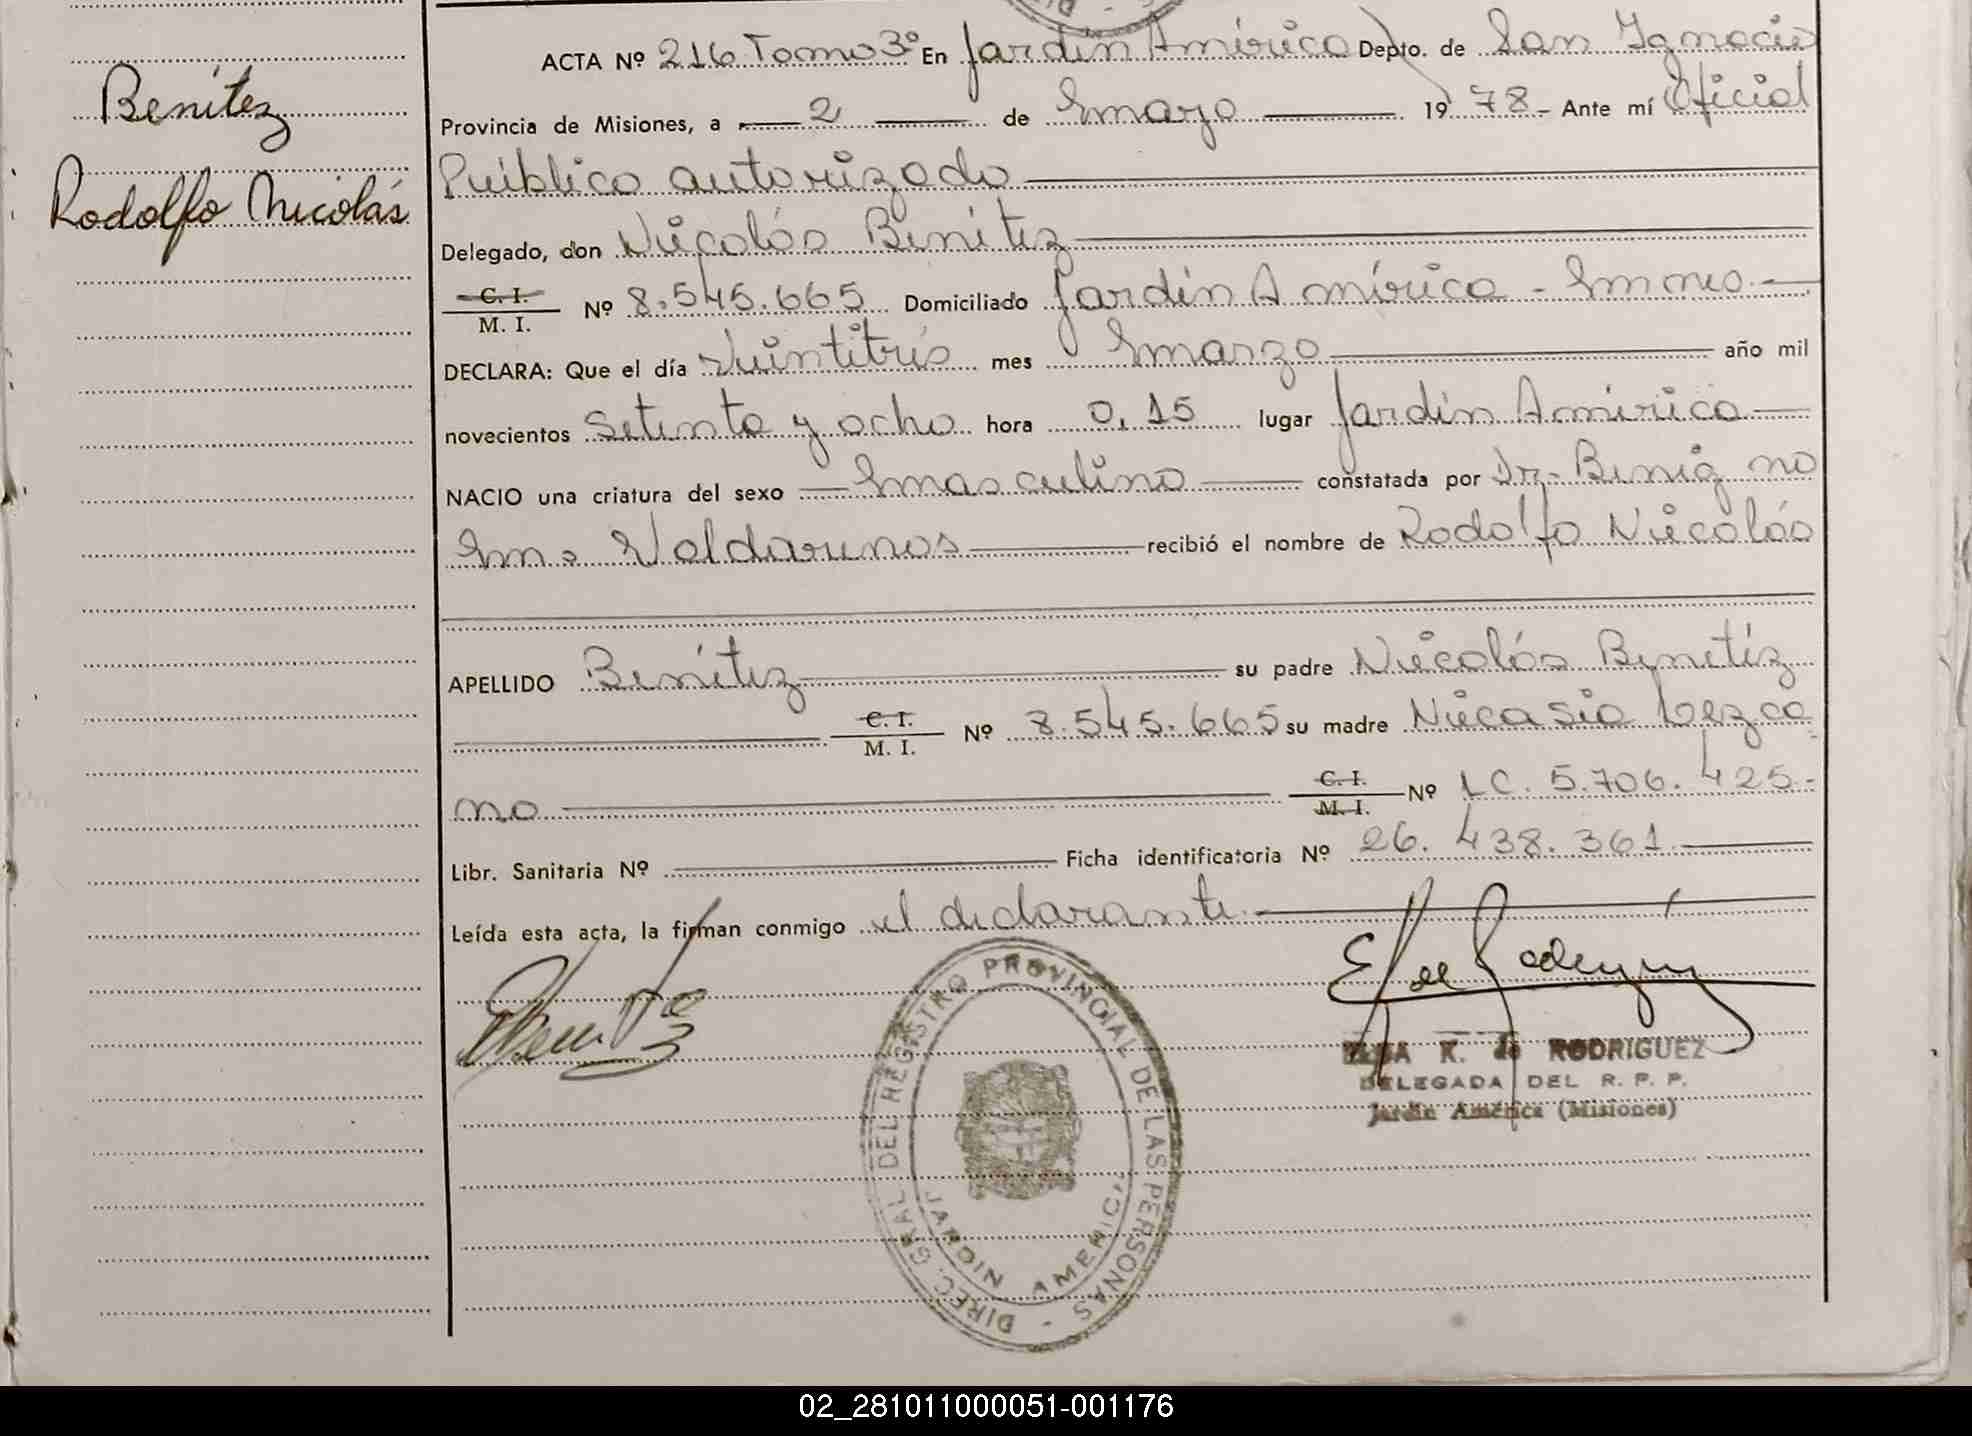 ACTA Nº 216 Tomo 3º En Jardín América Depto. de San Ignacio
Benítez
Provincia de Misiones, a 2 de marzo 1978.- Ante mí Oficial
Público autorizado
Rodolfo Nicolás
Delegado, don Nicolás Benítez
C. I.
M. I. Nº 8.545.665 Domiciliado Jardín América - Mnes.-
DECLARA: Que el día veintitrés mes marzo año mil
novecientos setenta y ocho hora 0,15 lugar Jardín América
NACIO una criatura del sexo masculino constatada por Dr. Benigno
recibió el nombre de Rodolfo Nicolás
APELLIDO Benítez su padre Nicolás Benítez
C. I.
M. I. Nº 8.545.665 su madre Nicasia Lezca
no C. I.
M. I. Nº LC. 5.706.425.-
Libr. Sanitaria Nº Ficha identificatoria Nº 26.438.361.
Leída esta acta, la firman conmigo el declarante.-
DIREC. GRAL. DEL REGISTRO PROVINCIAL DE LAS PERSONAS -
JARDIN AMERIC
K. de RODRIGUEZ
DELEGADA DEL R. P. P.
Jardín América (Misiones)
02_281011000051-001176